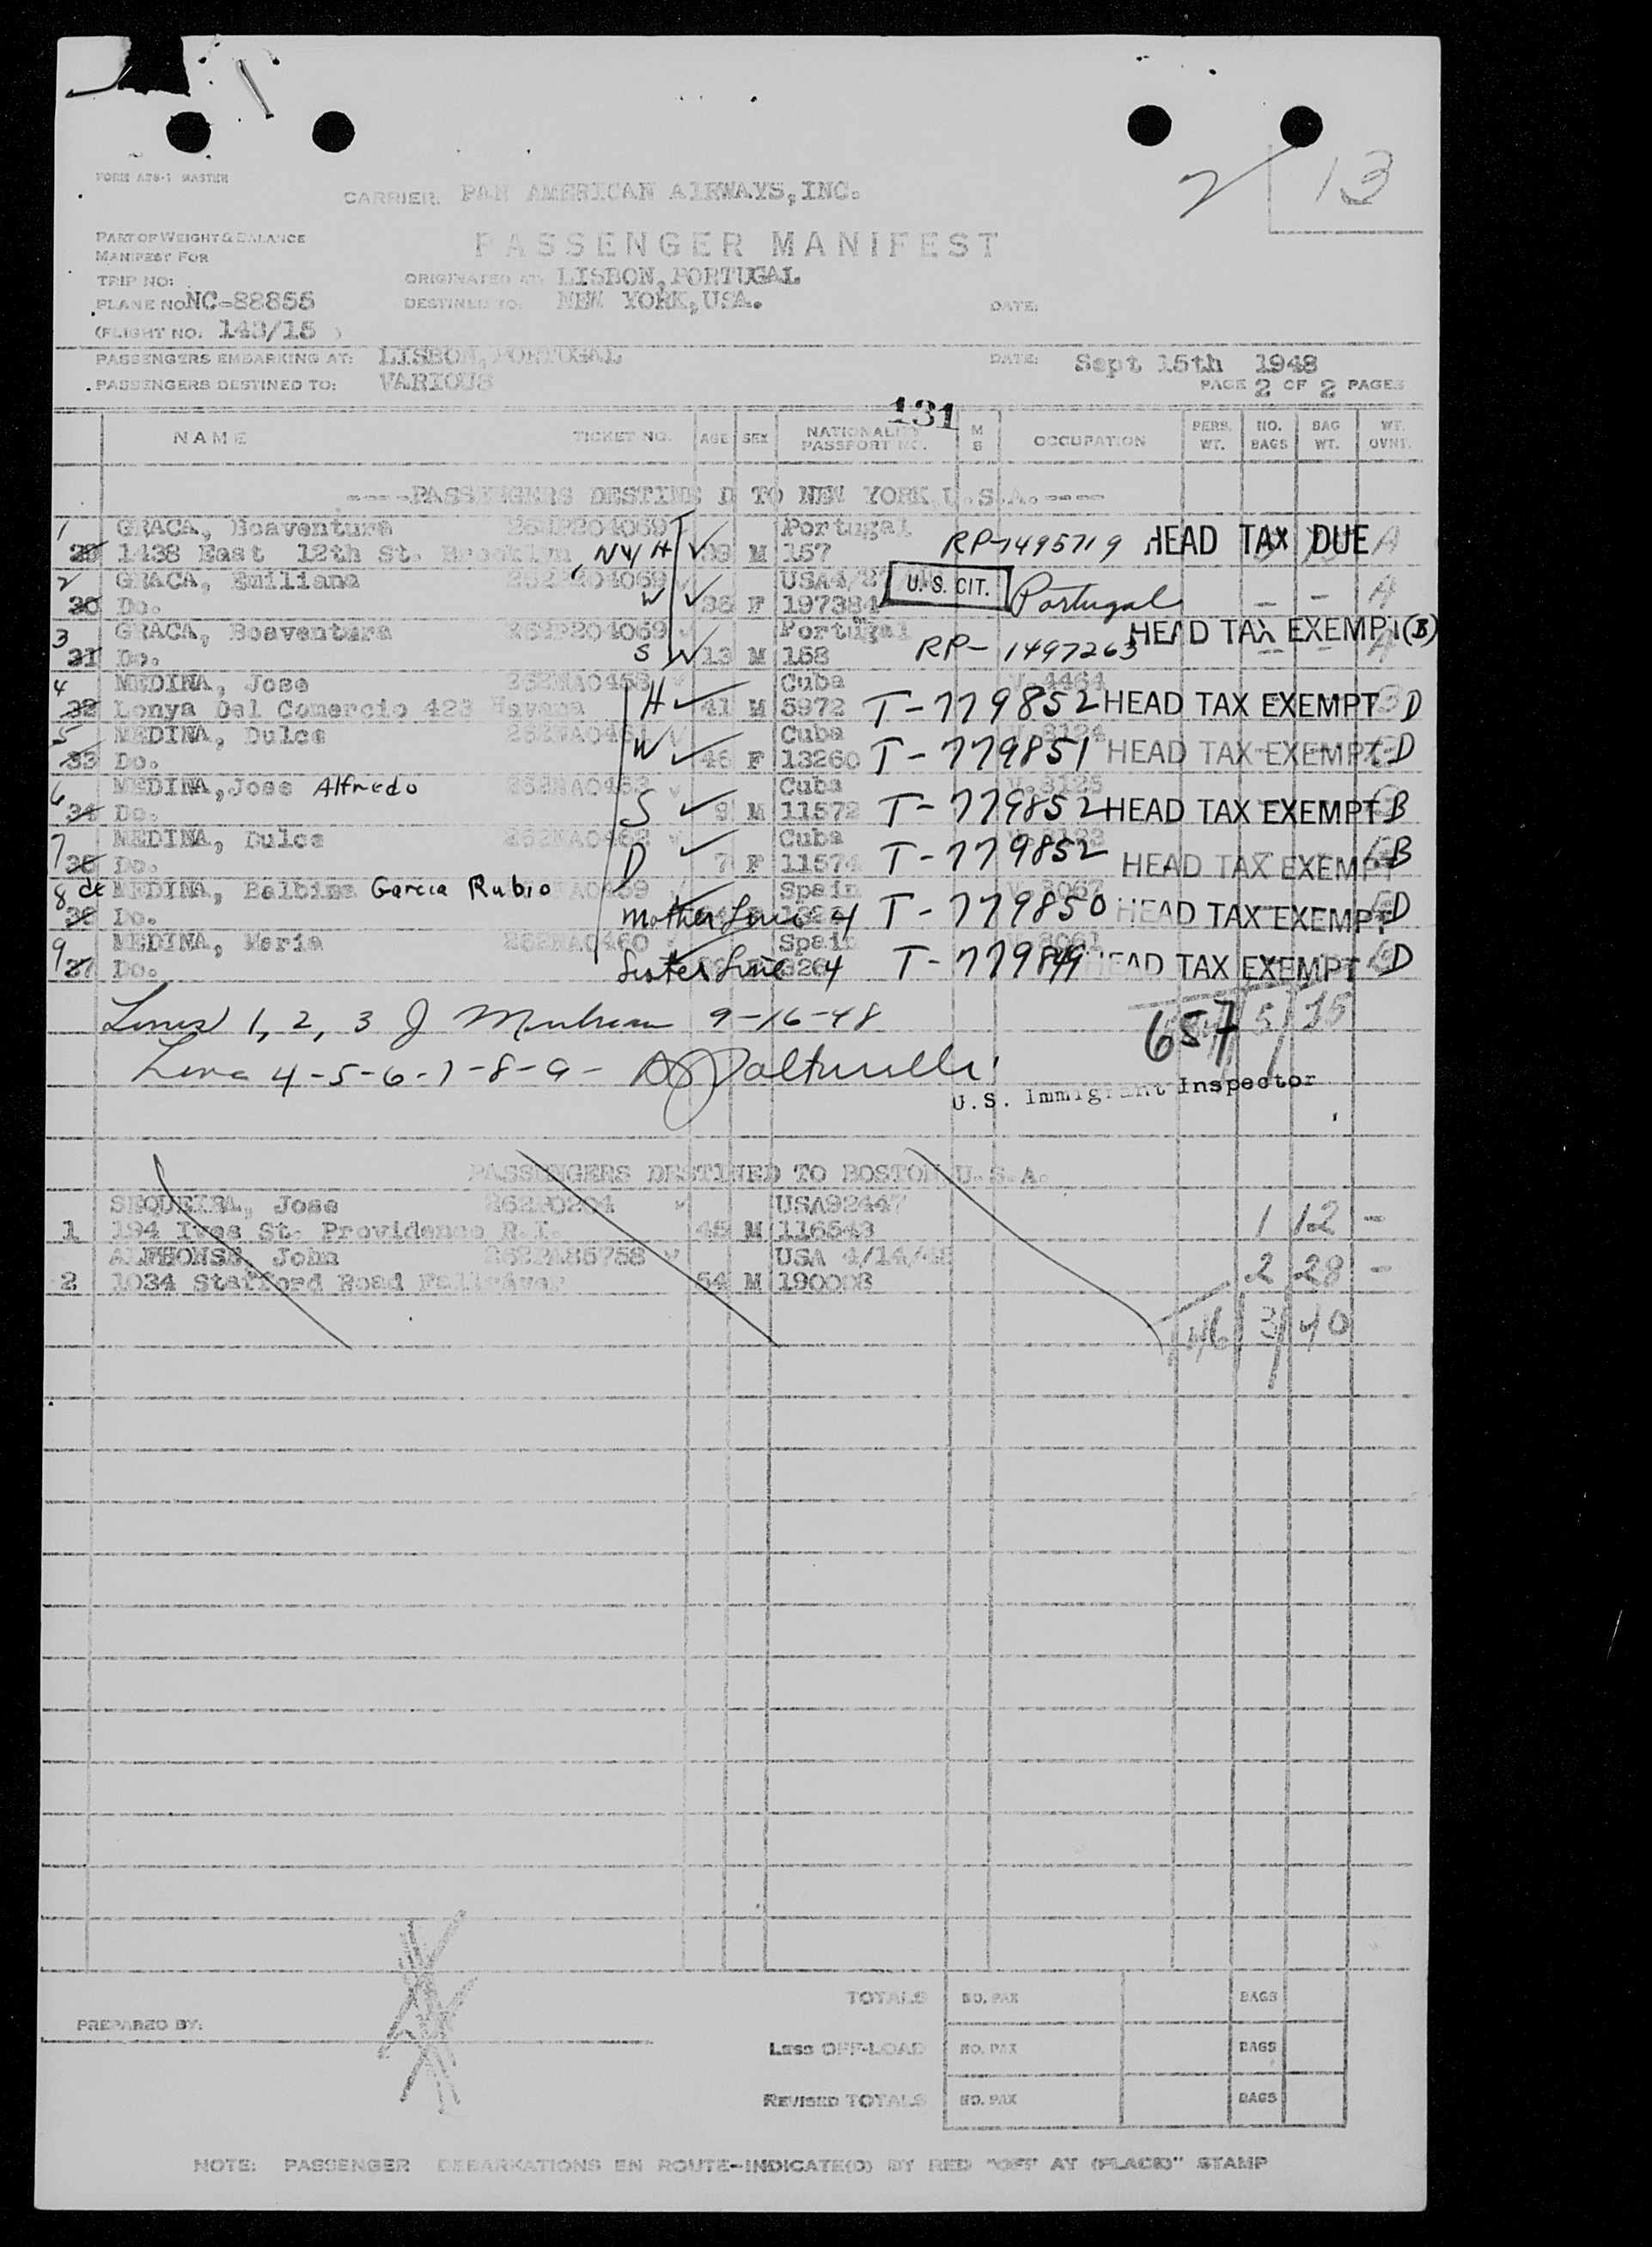 2 13
FORM ATS-1 MASTER
CARRIER: PAN AMERICAN AIRWAYS, INC.
PART OF WEIGHT & BALANCE
MANIFEST FOR
PASSENGER MANIFEST
TRIP NO: ORIGINATED AT: LISBON, PORTUGAL
PLANE NO NC-88855 DESTINED TO: NEW YORK, USA. DATE:
(FLIGHT NO. 143/15 )
PASSENGERS EMBARKING AT: LISBON, PORTUGAL DATE: Sept 15th 1948
PASSENGERS DESTINED TO: VARIOUS PAGE 2 OF 2 PAGES
131
NAME TICKET NO. AGE SEX NATIONALITY PASSPORT NO. M S OCCUPATION PERS. WT. NO. BAGS BAG WT. WT. OVNT.
----PASSENGERS DESTINE D TO NEW YORK U.S.A.----
1 GRACA, Boaventura Portugal
29 1438 East 12th St. Brooklyn, NY H M 157 RP-1495719 HEAD TAX DUE A
2 GRACA, Emiliana U.S. CIT. Portugal
30 Do. W 36 F 197384 - - A
3 GRACA, Boaventura Portugal HEAD TAX EXEMPT (B)
31 Do. S 13 M 158 RP- 1497263
4 MEDINA, Jose Cuba V.4464
32 Lonya Del Comercio 423 Havana H 41 M 5972 T-779852 HEAD TAX EXEMPT D
5 MEDINA, Dulce Cuba
33 Do. W 46 F 13260 T-779851 HEAD TAX EXEMPT D
6 MEDINA, Jose Alfredo Cuba V.3125
34 Do. S 9 M 11572 T-779852 HEAD TAX EXEMPT B
7 MEDINA, Dulce Cuba
35 Do. D 7 F 11574 T-779852 HEAD TAX EXEMPT B
8 de MEDINA, Balbina Garcia Rubio Spain V.3067
36 Do. Mother Line 4 T-779850 HEAD TAX EXEMPT D
9 MEDINA, Maria Spain
37 Do. Sister Line 4 T-779849 HEAD TAX EXEMPT D
Lines 1, 2, 3 J 9-16-48 657 5
Line 4-5-6-7-8-9-
U.S. Immigrant Inspector
PASSENGERS DESTINED TO BOSTON U.S.A.
SEQUEIRA, Jose USA92447
1 194 Ives St. Providence R.I. 45 M 116543 1 12 -
ALPHONSE John USA 4/14/48
2 1034 Stafford Road Fall River 54 M 2 28 -
3 40
TOTALS NO. PAX BAGS
PREPARED BY:
Less OFF-LOAD NO. PAX BAGS
REVISED TOTALS NO. PAX BAGS
NOTE: PASSENGER DEBARKATIONS EN ROUTE-INDICATE(D) BY RED "OFF AT (PLACE)" STAMP